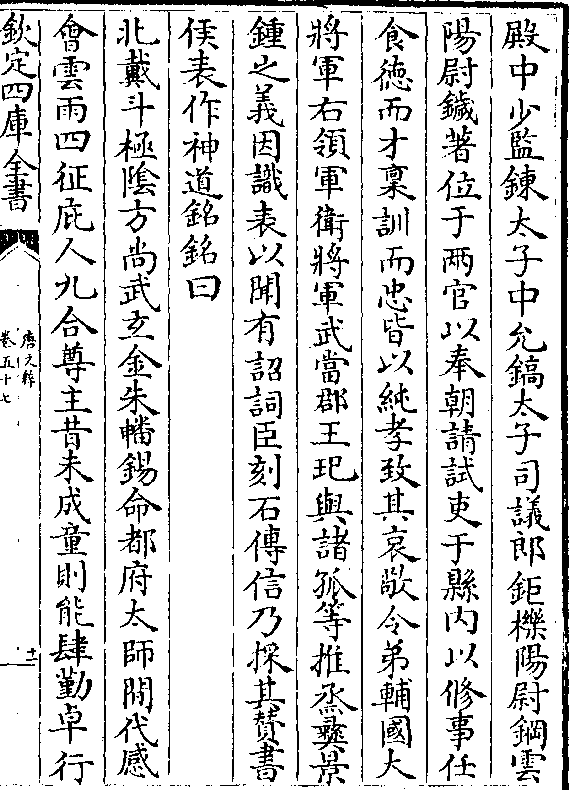 殿中少監錬太子中允鎬太子司議郎鉅櫟陽尉鋼雲
陽尉鐬著位于兩官以奉朝請試吏于縣内以修事任
食德而才稟訓而忠皆以純孝致其哀敞令弟輔國大
將軍右領軍衛將軍武當郡王玘與諸孤等推烝彝景
鍾之義因識表以聞有詔詞臣刻石傳信乃採其贊書
侯表作神道銘銘曰
北戴斗極陰方尚武玄金朱幡錫命都府太師間代感
會雲雨四征庇人九合尊主昔未成童則能肆勤卓行
欽定四庫全書
唐文粹
卷五十七
十二